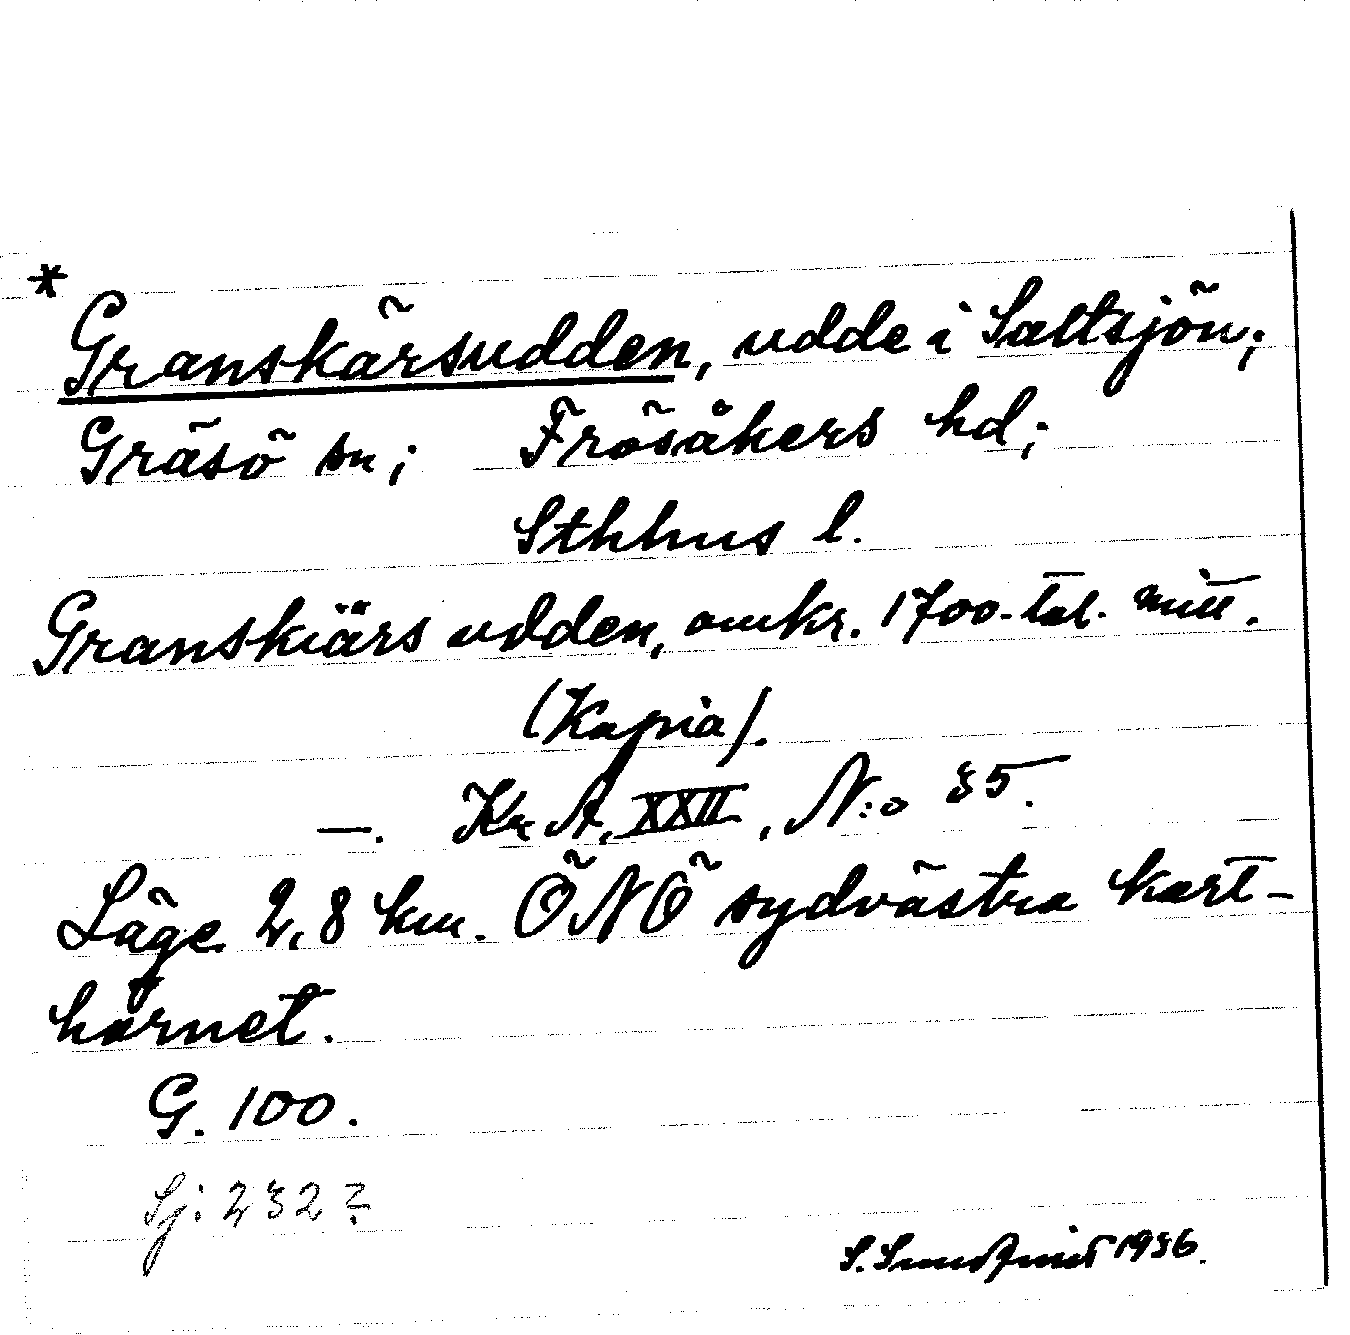 * Granskärsudden, udde i Saltsjön;
Gräsö sn; Frösåkers hd;
Sthhus l.
Granskiärs udden, omkr. 1700-tal. mitt.
(Kopia).
—. Kr. A. XXII, N:o 35.
Läge 2,8 km. ÖNÖ sydvästra kart-
hörnet.
G. 100.
Sj: 232?
S. Sundqvist 1936.